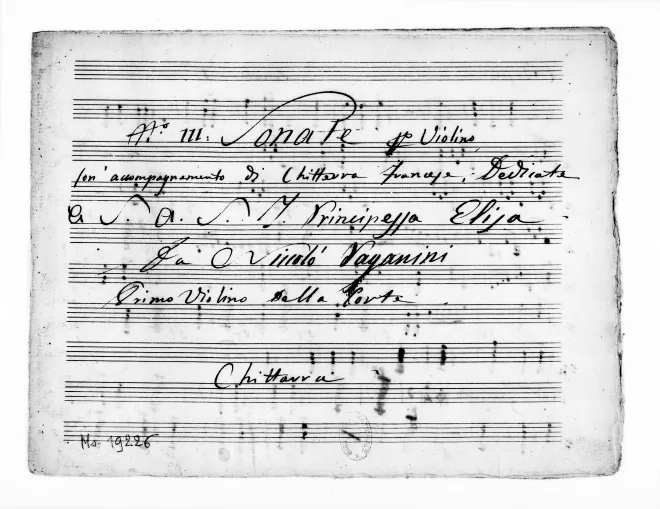 N.º III: Sonate p Violino
con' accompagnamento di Chittarra francese; Dedicate
a S. A. S. I. Principessa Elisa
Da Nicolò Paganini
Primo Violino della Corte
Chittarra
Ms. 19226